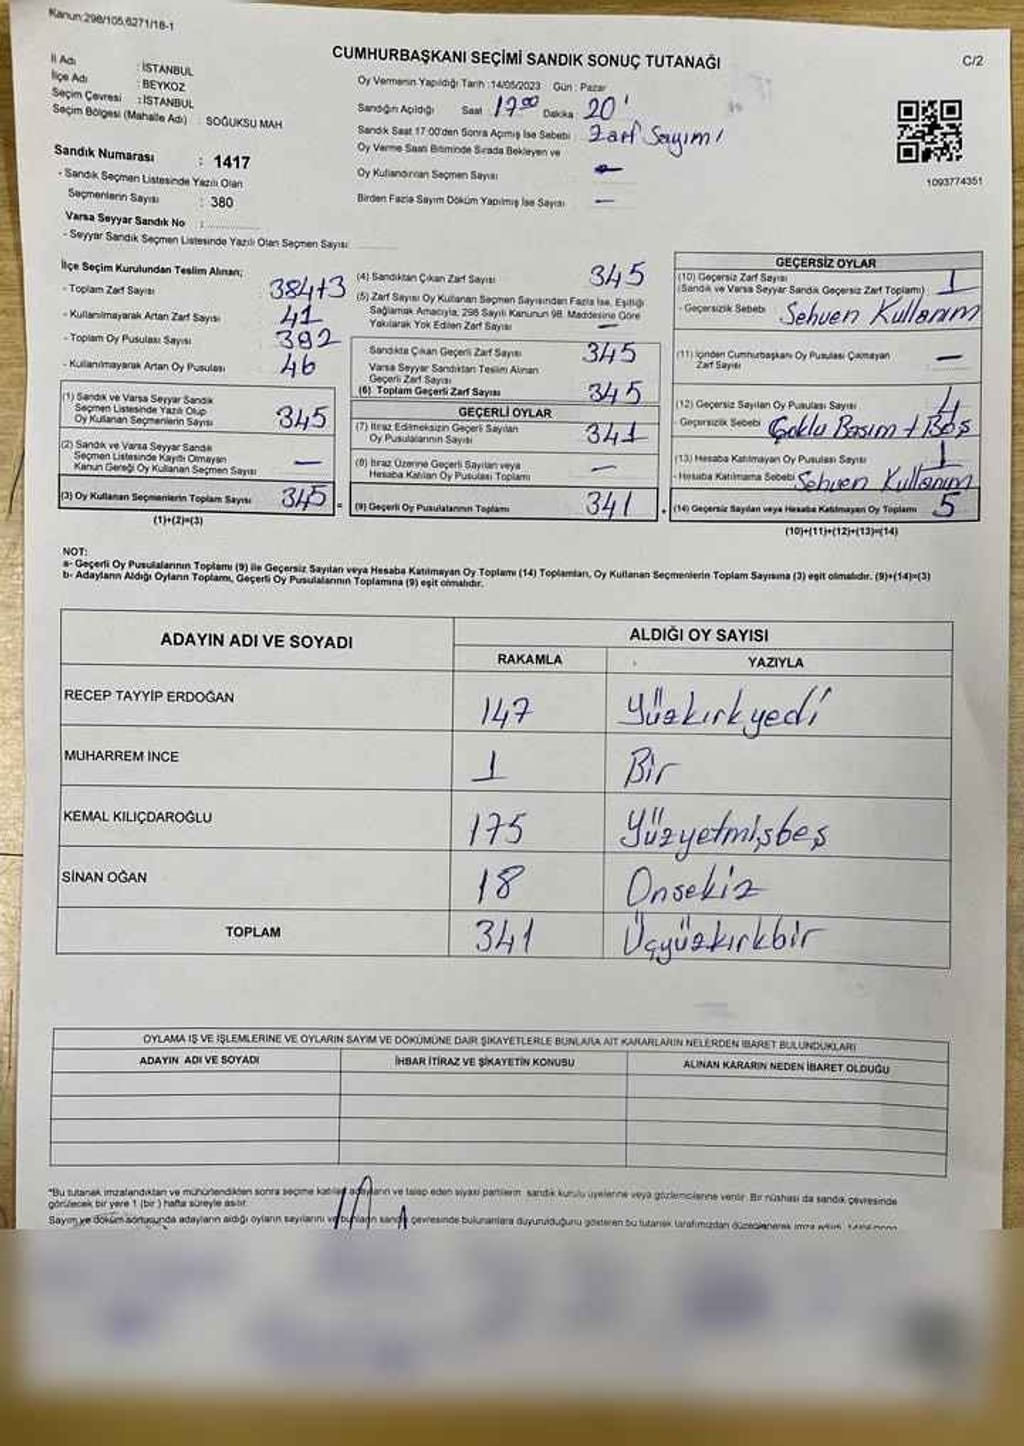 Kanun:298/105,6271/18-1
CUMHURBAŞKANI SEÇİMİ SANDIK SONUÇ TUTANAĞI
C/2
İl Adı : İSTANBUL
İlçe Adı : BEYKOZ
Seçim Çevresi : İSTANBUL
Seçim Bölgesi (Mahalle Adı) : SOĞUKSU MAH
Sandık Numarası : 1417
- Sandık Seçmen Listesinde Yazılı Olan
Seçmenlerin Sayısı : 380
Varsa Seyyar Sandık No :
- Seyyar Sandık Seçmen Listesinde Yazılı Olan Seçmen Sayısı
Oy Vermenin Yapıldığı Tarih :14/05/2023 Gün : Pazar
Sandığın Açıldığı Saat 17 00 Dakika 20'
Sandık Saat 17:00'den Sonra Açmış İse Sebebi : Zarf Sayımı
Oy Verme Saati Bitiminde Sırada Bekleyen ve
Oy Kullandırılan Seçmen Sayısı —
Birden Fazla Sayım Döküm Yapılmış İse Sayısı —
1093774351
İlçe Seçim Kurulundan Teslim Alınan;
- Toplam Zarf Sayısı : 384+3
- Kullanılmayarak Artan Zarf Sayısı : 41
- Toplam Oy Pusulası Sayısı : 392
- Kullanılmayarak Artan Oy Pusulası : 46
(1) Sandık ve Varsa Seyyar Sandık
Seçmen Listesinde Yazılı Olup
Oy Kullanan Seçmenlerin Sayısı 345
(2) Sandık ve Varsa Seyyar Sandık
Seçmen Listesinde Kayıtlı Olmayan
Kanun Gereği Oy Kullanan Seçmen Sayısı —
(3) Oy Kullanan Seçmenlerin Toplam Sayısı 345
(1)+(2)=(3)
(4) Sandıktan Çıkan Zarf Sayısı 345
(5) Zarf Sayısı Oy Kullanan Seçmen Sayısından Fazla İse, Eşitliği
Sağlamak Amacıyla, 298 Sayılı Kanunun 98. Maddesine Göre
Yakılarak Yok Edilen Zarf Sayısı —
Sandıkta Çıkan Geçerli Zarf Sayısı 345
Varsa Seyyar Sandıktan Teslim Alınan
Geçerli Zarf Sayısı
(6) Toplam Geçerli Zarf Sayısı 345
GEÇERLİ OYLAR
(7) İtiraz Edilmeksizin Geçerli Sayılan
Oy Pusulalarının Sayısı 341
(8) İtiraz Üzerine Geçerli Sayılan veya
Hesaba Katılan Oy Pusulası Toplamı —
(9) Geçerli Oy Pusulalarının Toplamı 341
GEÇERSİZ OYLAR
(10) Geçersiz Zarf Sayısı
(Sandık ve Varsa Seyyar Sandık Geçersiz Zarf Toplamı) 1
- Geçersizlik Sebebi Sehven Kullanım
(11) İçinden Cumhurbaşkanı Oy Pusulası Çıkmayan
Zarf Sayısı —
(12) Geçersiz Sayılan Oy Pusulası Sayısı 4
- Geçersizlik Sebebi Çoklu Basım + Boş
(13) Hesaba Katılmayan Oy Pusulası Sayısı 1
- Hesaba Katılmama Sebebi Sehven Kullanım
(14) Geçersiz Sayılan veya Hesaba Katılmayan Oy Toplamı 5
(10)+(11)+(12)+(13)=(14)
NOT:
a- Geçerli Oy Pusulalarının Toplamı (9) ile Geçersiz Sayılan veya Hesaba Katılmayan Oy Toplamı (14) Toplamları, Oy Kullanan Seçmenlerin Toplam Sayısına (3) eşit olmalıdır. (9)+(14)=(3)
b- Adayların Aldığı Oyların Toplamı, Geçerli Oy Pusulalarının Toplamına (9) eşit olmalıdır.
ADAYIN ADI VE SOYADI
ALDIĞI OY SAYISI
RAKAMLA YAZIYLA
RECEP TAYYİP ERDOĞAN 147 Yüzkırkyedi
MUHARREM İNCE 1 Bir
KEMAL KILIÇDAROĞLU 175 Yüzyetmişbeş
SİNAN OĞAN 18 Onsekiz
TOPLAM 341 Üçyüzkırkbir
OYLAMA İŞ VE İŞLEMLERİNE VE OYLARIN SAYIM VE DÖKÜMÜNE DAİR ŞİKAYETLERLE BUNLARA AİT KARARLARIN NELERDEN İBARET BULUNDUKLARI
ADAYIN ADI VE SOYADI İHBAR İTİRAZ VE ŞİKAYETİN KONUSU ALINAN KARARIN NEDEN İBARET OLDUĞU
*Bu tutanak imzalandıktan ve mühürlendikten sonra seçime katılan adayların ve talep eden siyasi partilerin sandık kurulu üyelerine veya gözlemcilerine verilir. Bir nüshası da sandık çevresinde
görülecek bir yere 1 (bir) hafta süreyle asılır.
Sayım ve döküm sonucunda adayların aldığı oyların sayılarını ve bunların sandık çevresinde bulunanlara duyurulduğunu gösteren bu tutanak tarafımızdan düzenlenerek imza edildi.